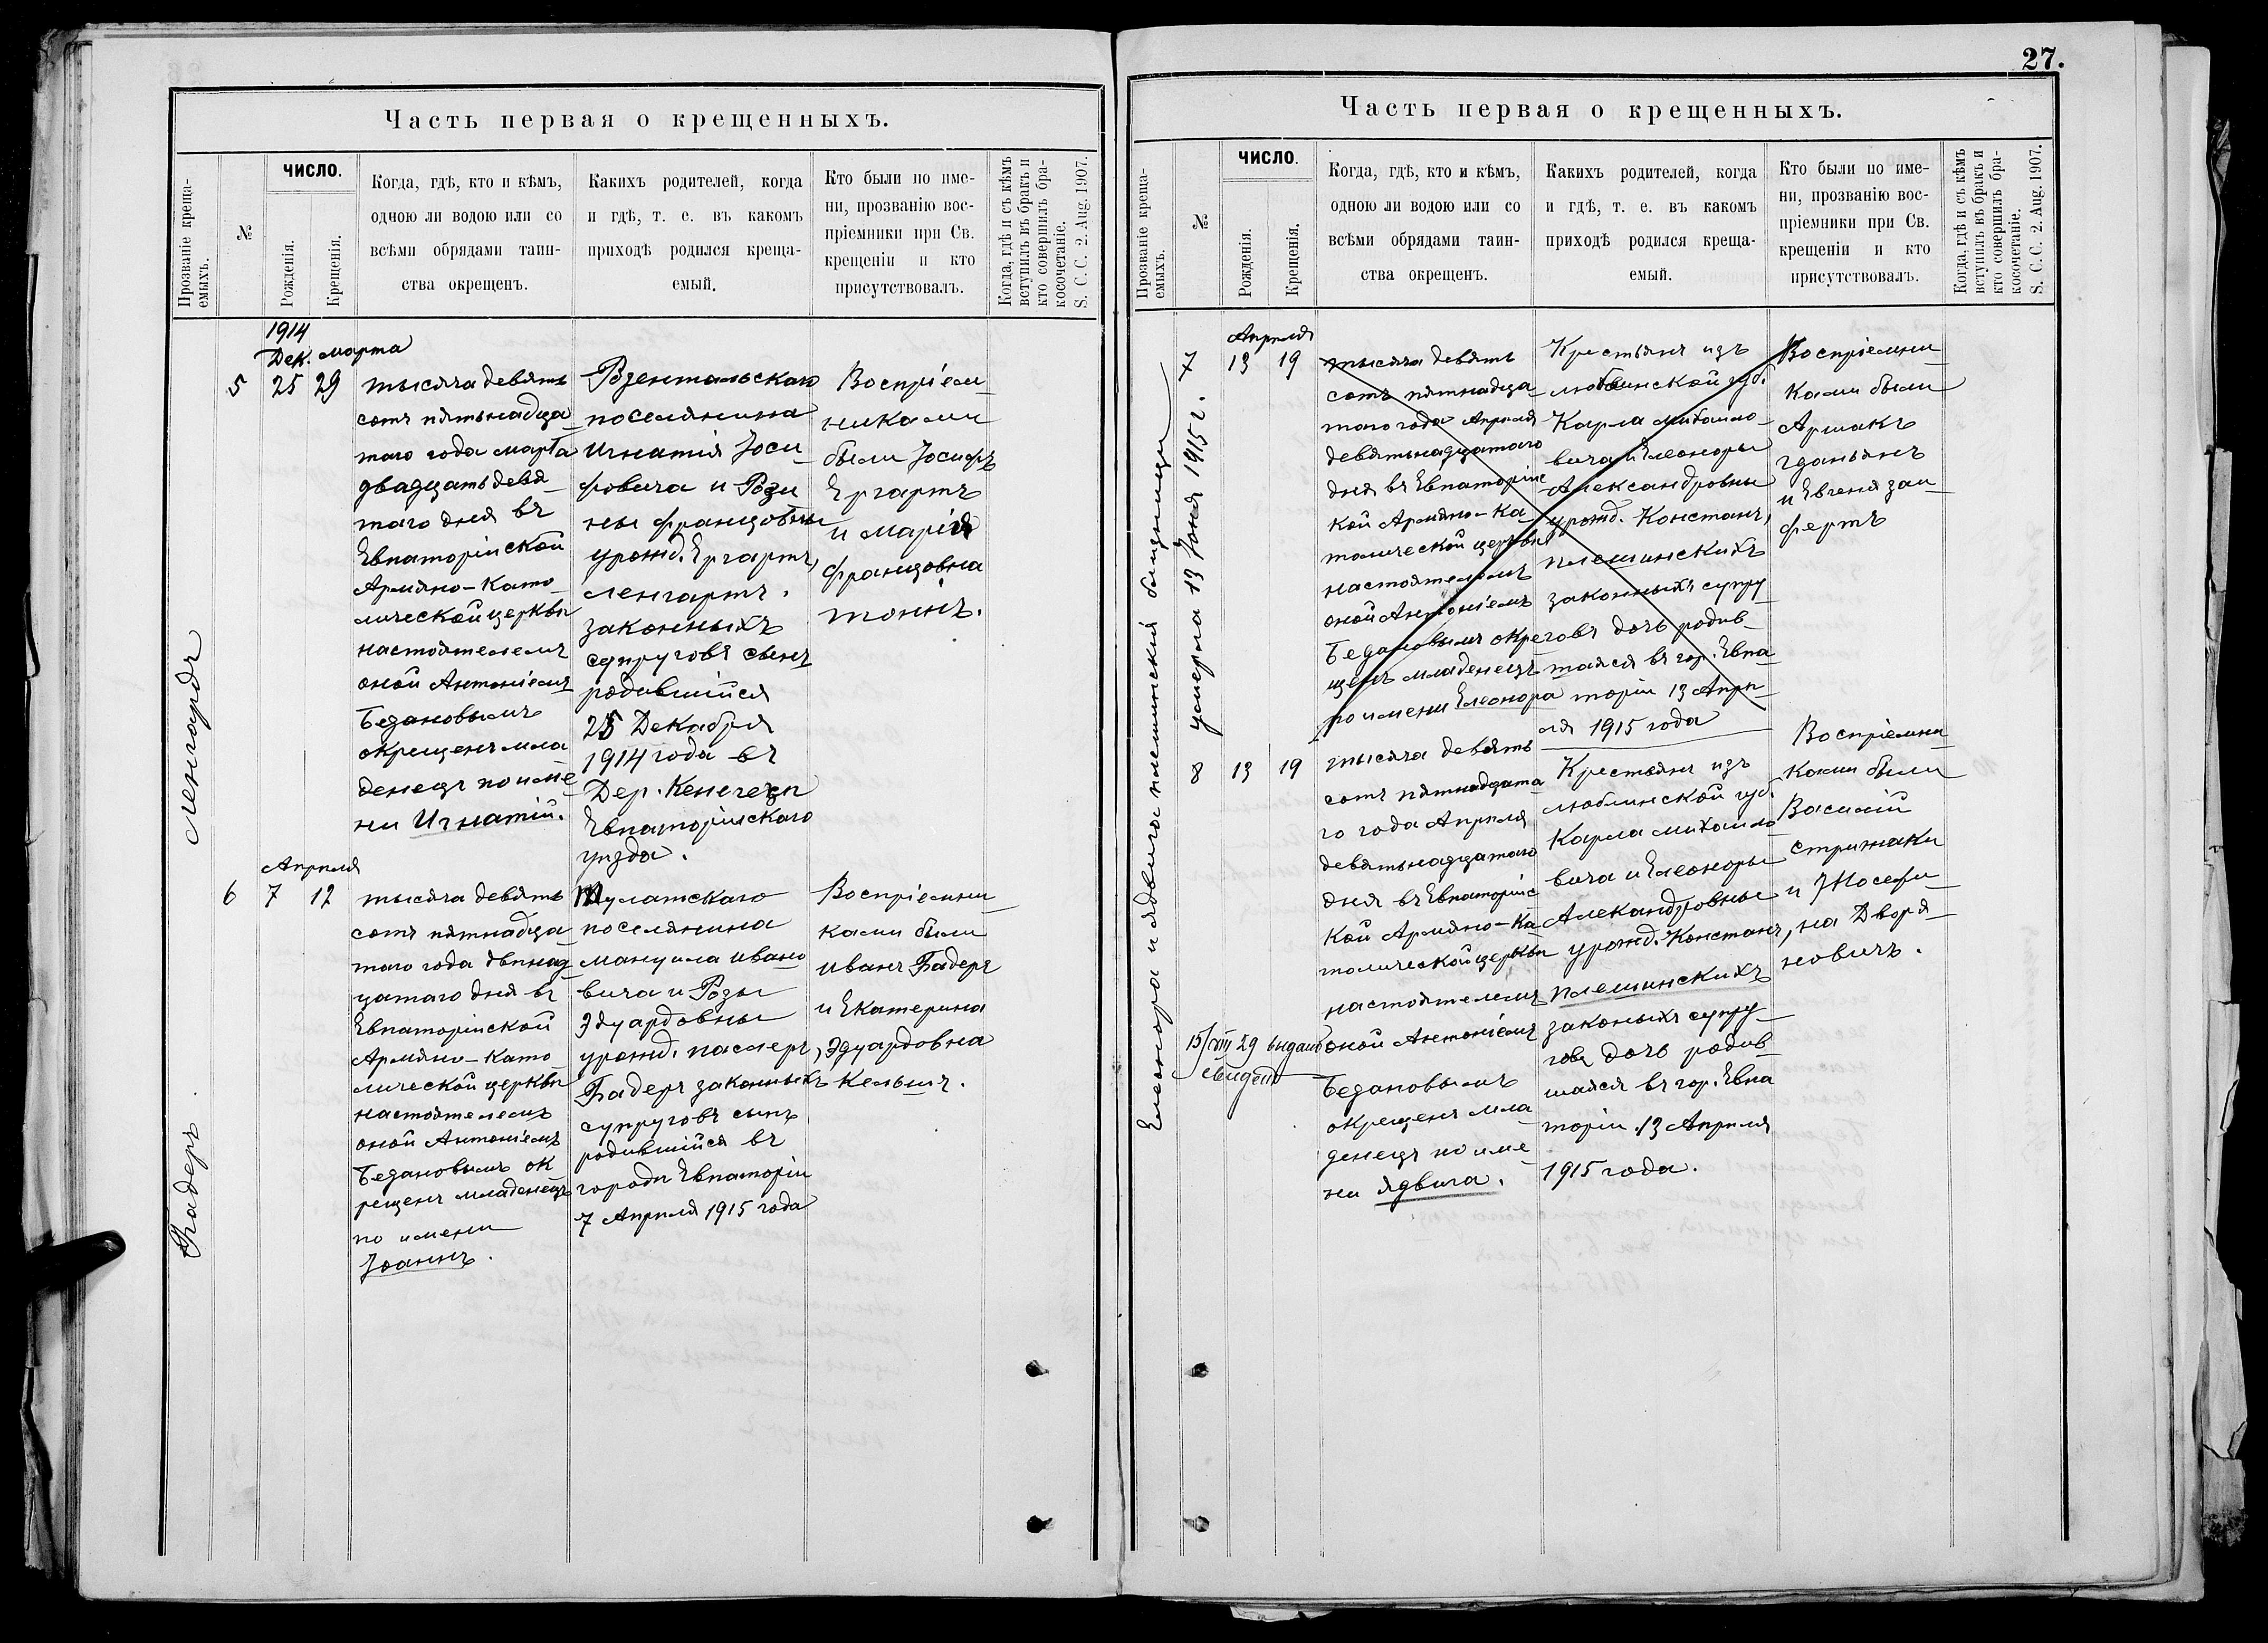 Часть первая о крещенныхъ.
Прозваніе креща-
емыхъ.
№
ЧИСЛО.
Рожденія.
Крещенія.
Когда, гдѣ, кто и кѣмъ,
одною ли водою или со
всѣми обрядами таин-
ства окрещенъ.
Какихъ родителей, когда
и гдѣ, т. е. въ какомъ
приходѣ родился креща-
емый.
Кто были по име-
ни, прозванію вос-
пріемники при Св.
крещеніи и кто
присутствовалъ.
Когда, гдѣ и съ кѣмъ
вступилъ въ бракъ и
кто совершилъ бра-
косочетаніе.
S. C. C. 2. Aug. 1907.
Ленгардъ
1914
Дек. марта
5 25 29
тысяча девять
сотъ пятьнадца
таго года марта
двадцать девя
таго дня въ
Евпаторійской
Армяно-Като
лической церкви
настоятелемъ
оной Антоніемъ
Безановымъ
окрещенъ мла
денецъ по име
ни Игнатій.
Розентальскаго
поселянина
Игнатія Іоси
фовича и Рози
ны францовны
урожд. Ергартъ,
Ленгартъ.
законныхъ
супруговъ сынъ
родившійся
25 Декабря
1914 года въ
Дер. Кенегезъ
Евпаторійскаго
уѣзда.
Воспріем
никами
были Іосифъ
Ергартъ
и марія
францовна
тоннъ.
Бадеръ
Апрѣля
6 7 12
тысяча девять
сотъ пятнадца
таго года двѣнад
цатаго дня въ
Евпаторійской
Армяно-като
лической церкви
настоятелемъ
оной Антоніемъ
Безановымъ ок
рещенъ младенецъ
по имени
Іоаннъ.
поселянина
мануила ивано
вича и Розы
Эдуардовны
Бадеръ законныхъ
супруговъ сынъ
родившійся въ
городѣ Евпаторіи
7 Апрѣля 1915 года
Воспріемни
ками были
иванъ Бадеръ
и Екатерина
Эдуардовна
27.
Часть первая о крещенныхъ.
Прозваніе креща-
емыхъ.
№
ЧИСЛО.
Рожденія.
Крещенія.
Когда, гдѣ, кто и кѣмъ,
одною ли водою или со
всѣми обрядами таин-
ства окрещенъ.
Какихъ родителей, когда
и гдѣ, т. е. въ какомъ
приходѣ родился креща-
емый.
Кто были по име-
ни, прозванію вос-
пріемники при Св.
крещеніи и кто
присутствовалъ.
Когда, гдѣ и съ кѣмъ
вступилъ въ бракъ и
кто совершилъ бра-
косочетаніе.
S. C. C. 2. Aug. 1907.
Елеонора и ядвига плешинскій близницы
умерла 13 Іюня 1915 г.
Апрѣля
7 13 19
тысяча девять
сотъ пятнадца
таго года Апрѣля
девятьнадцатаго
дня въ Евпаторійс
кой Армяно-Ка
толической церкви
настоятелемъ
оной Антоніемъ
Безановымъ окре
щенъ младенецъ
по имени Елеонора
Крестьянъ изъ
люблинской губ.
Карла михаило
вича и Елеоноры
Александровны
урожд. Констанъ,
плешинскихъ
законныхъ супру
говъ дочь родив
шаяся въ гор. Евпа
торіи 13 Апрѣ
ля 1915 года
Воспріемни
ками были
Аршакъ
гданьянъ
и Евгенія зай
фертъ
8 13 19
тысяча девять
сотъ пятнадцата
го года Апрѣля
девятьнадцатаго
дня въ Евпаторійс
кой Армяно-Ка
толической церкви
настоятелемъ
оной Антоніемъ
Безановымъ
окрещенъ мла
денецъ по име
ни ядвига.
Крестьянъ изъ
люблинской губ.
Карла михаило
вича и Елеоноры
Александровны
урожд. Констанъ,
плешинскихъ
законыхъ супру
говъ дочь родив
шаяся въ гор. Евпа
торіи 13 Апрѣля
1915 года.
Воспріемни
ками были
Василій
стрижаки
и Жосефи
на Дворя
новичъ.
15/VIII 29 выдано
свидет